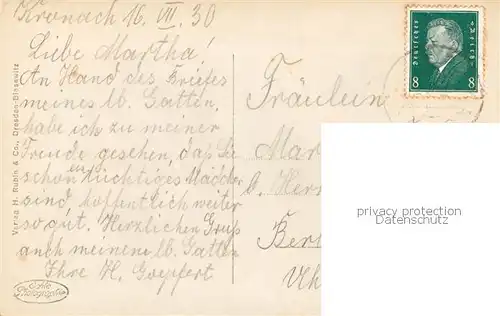 Kronach 16. VII. 30
Liebe Martha!
An Hand des Briefes
meines lb. Gatten,
habe ich zu meiner
Freude gesehen, daß Sie
schon ein tüchtiges Mädchen
sind hoffentlich weiter
so gut. Herzlichen Gruß
auch meinem lb. Gatten
Ihre H. Goepfert
Fräulein
Mar
b. Herr
Ber
Uh
Deutsches Reich
8 8
privacy protection
Datenschutz
Verlag H. Rubin & Co., Dresden-Blasewitz
Echte
Photographie